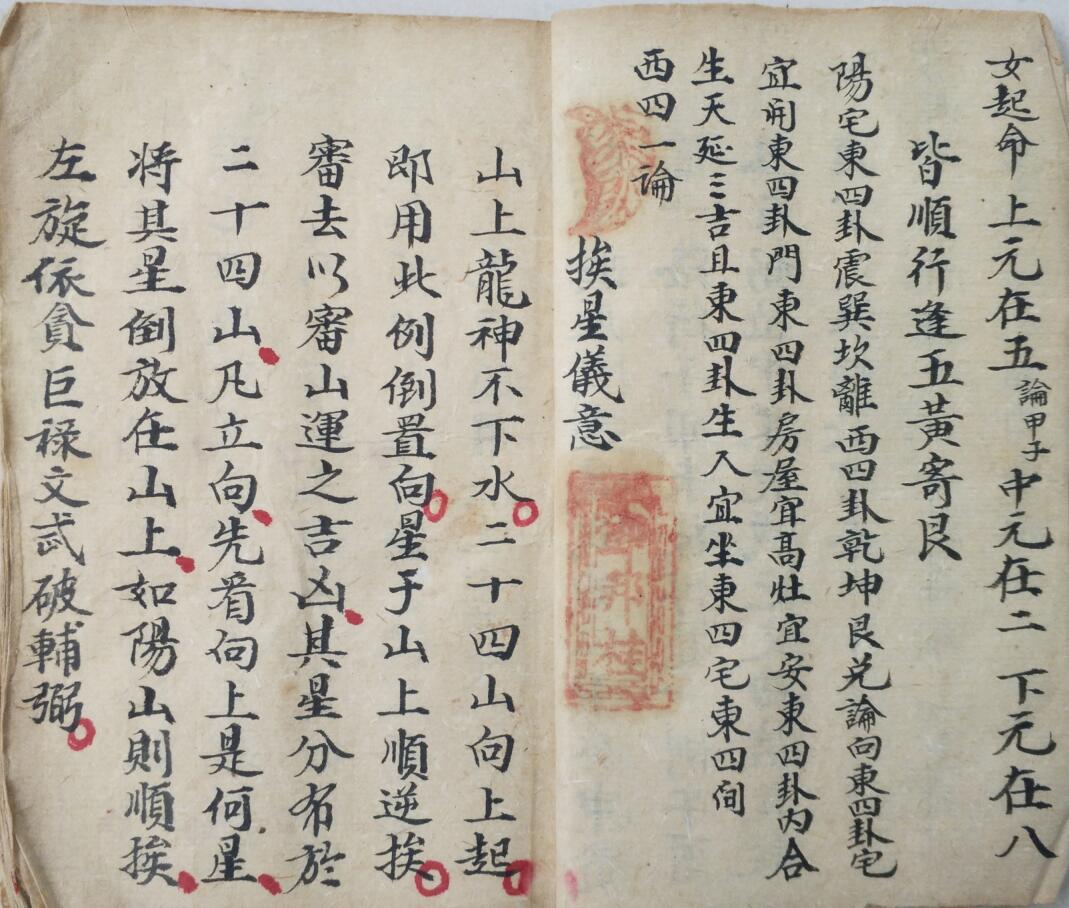 女起命上元在五論甲子中元在二下元在八
皆順行逢五黃寄艮
陽宅東四卦震巽坎離西四卦乾坤艮兌論向東四卦宅
宜開東四卦門東四卦房屋宜高壯宜安東四卦內合
生天延三吉且東四卦生人宜坐東四宅東四間
西四一論
挨星儀意
山上龍神不下水二十四山向上起
即用此例倒置向星于山上順逆挨
審去以審山運之吉凶其星分布於
二十四山凡立向先看向上是何星
将其星倒放在山上如陽山則順挨
左旋依貪巨禄文武破輔弼